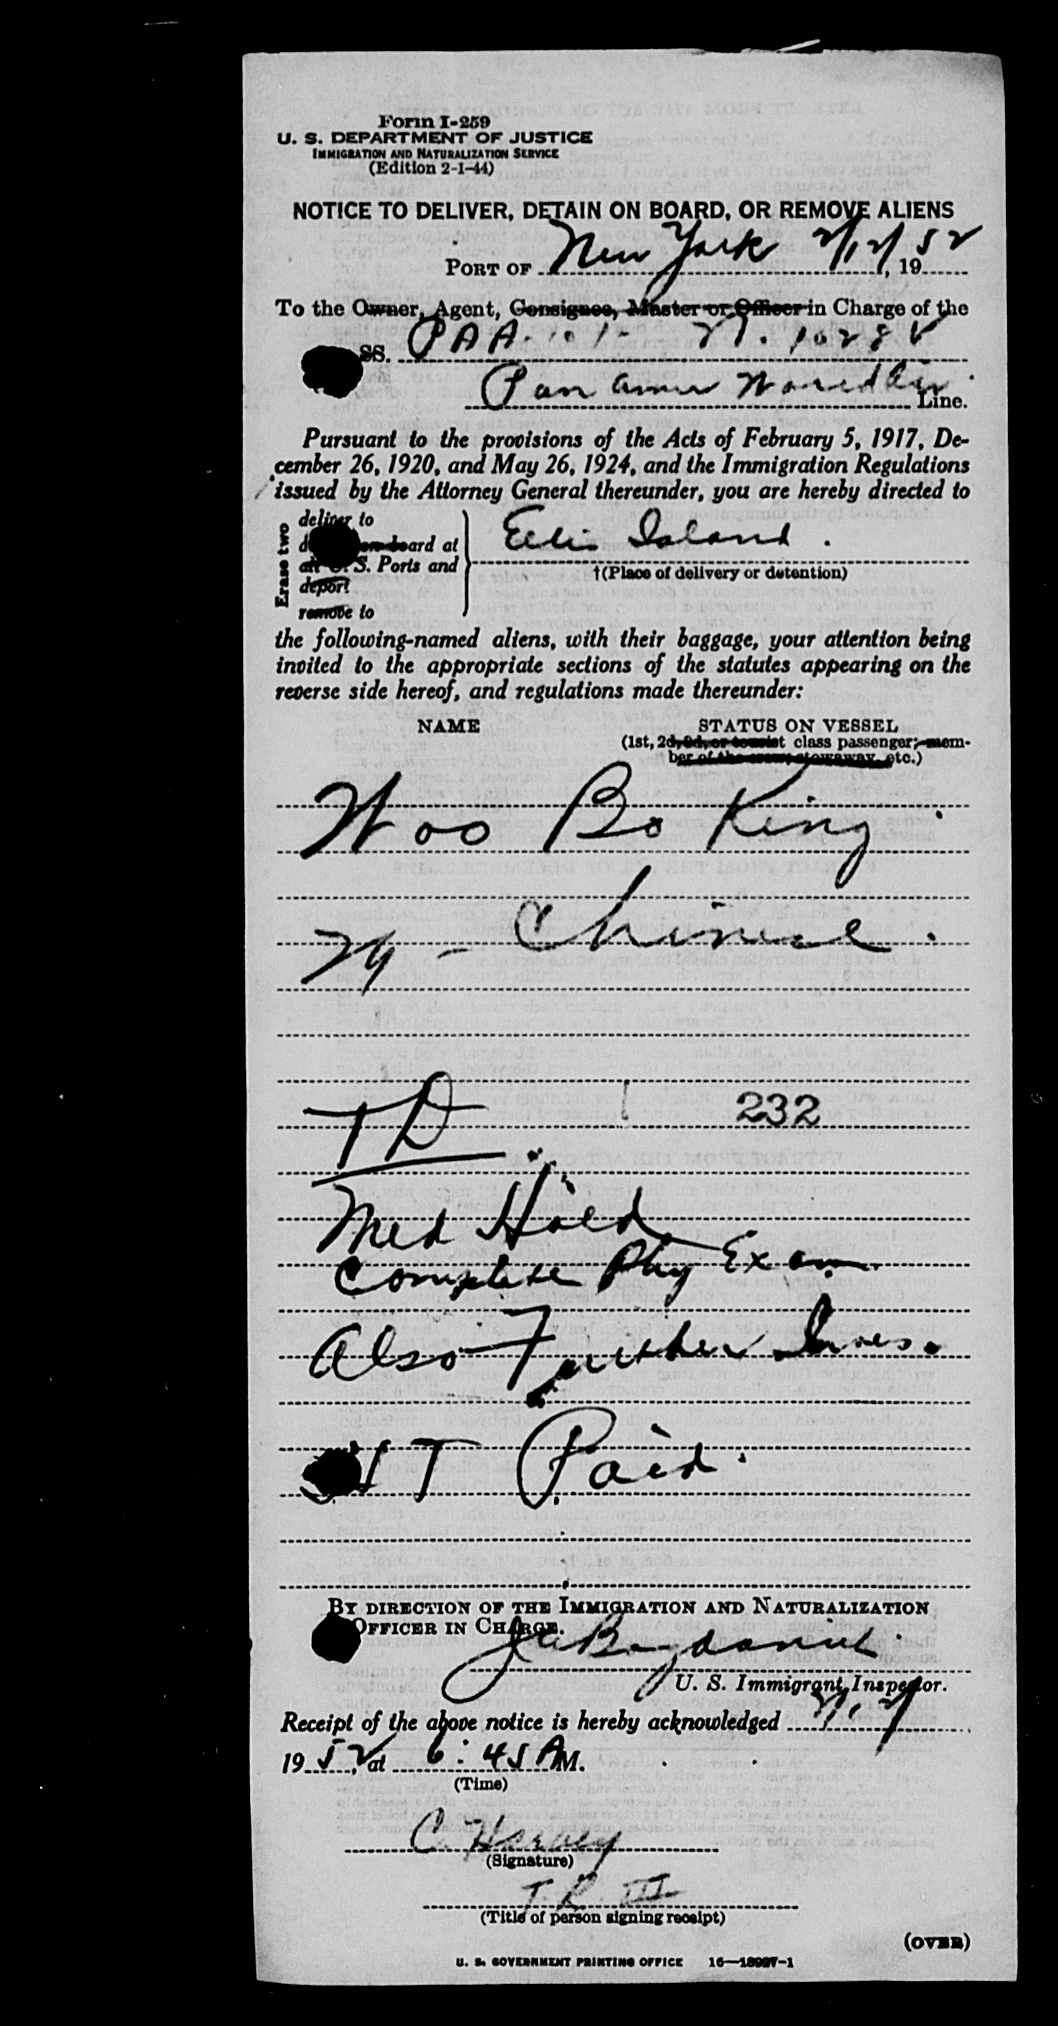 Form I-259
U. S. DEPARTMENT OF JUSTICE
IMMIGRATION AND NATURALIZATION SERVICE
(Edition 2-1-44)
NOTICE TO DELIVER, DETAIN ON BOARD, OR REMOVE ALIENS
PORT OF New York 2/12/, 1952
To the Owner, Agent, Consignee, Master or Officer in Charge of the
SS. PAA 101 N. 1028V
Pan Amer World Air Line.
Pursuant to the provisions of the Acts of February 5, 1917, De-
cember 26, 1920, and May 26, 1924, and the Immigration Regulations
issued by the Attorney General thereunder, you are hereby directed to
Erase two
deliver to
on board at
all U. S. Ports and
deport
remove to
Ellis Island.
†(Place of delivery or detention)
the following-named aliens, with their baggage, your attention being
invited to the appropriate sections of the statutes appearing on the
reverse side hereof, and regulations made thereunder:
NAME STATUS ON VESSEL
(1st, 2d, 3d, or tourist class passenger; mem-
ber of the crew, stowaway, etc.)
Woo Bo King
Chinese.
TD 232
Med Hold
Complete Phy Exam.
Also Further Inves.
HT Paid.
BY DIRECTION OF THE IMMIGRATION AND NATURALIZATION
OFFICER IN CHARGE.
U. S. Immigrant Inspector.
Receipt of the above notice is hereby acknowledged
1952, at 6:45 A M.
(Time)
C. Harvey
(Signature)
T. R. III
(Title of person signing receipt)
(OVER)
U. S. GOVERNMENT PRINTING OFFICE 16—18997-1